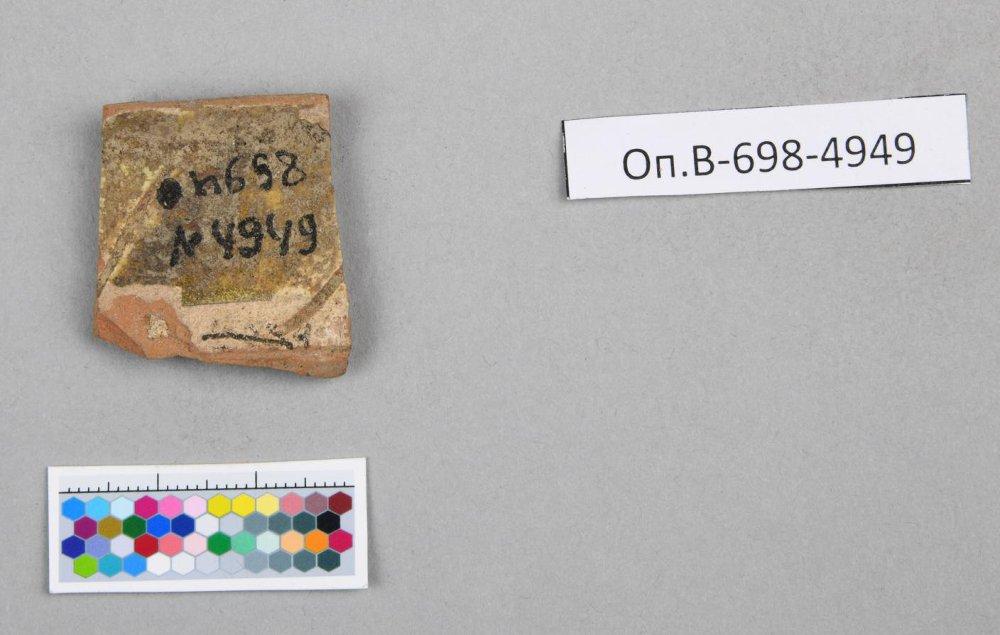 оп698
№4949
Оп.В-698-4949